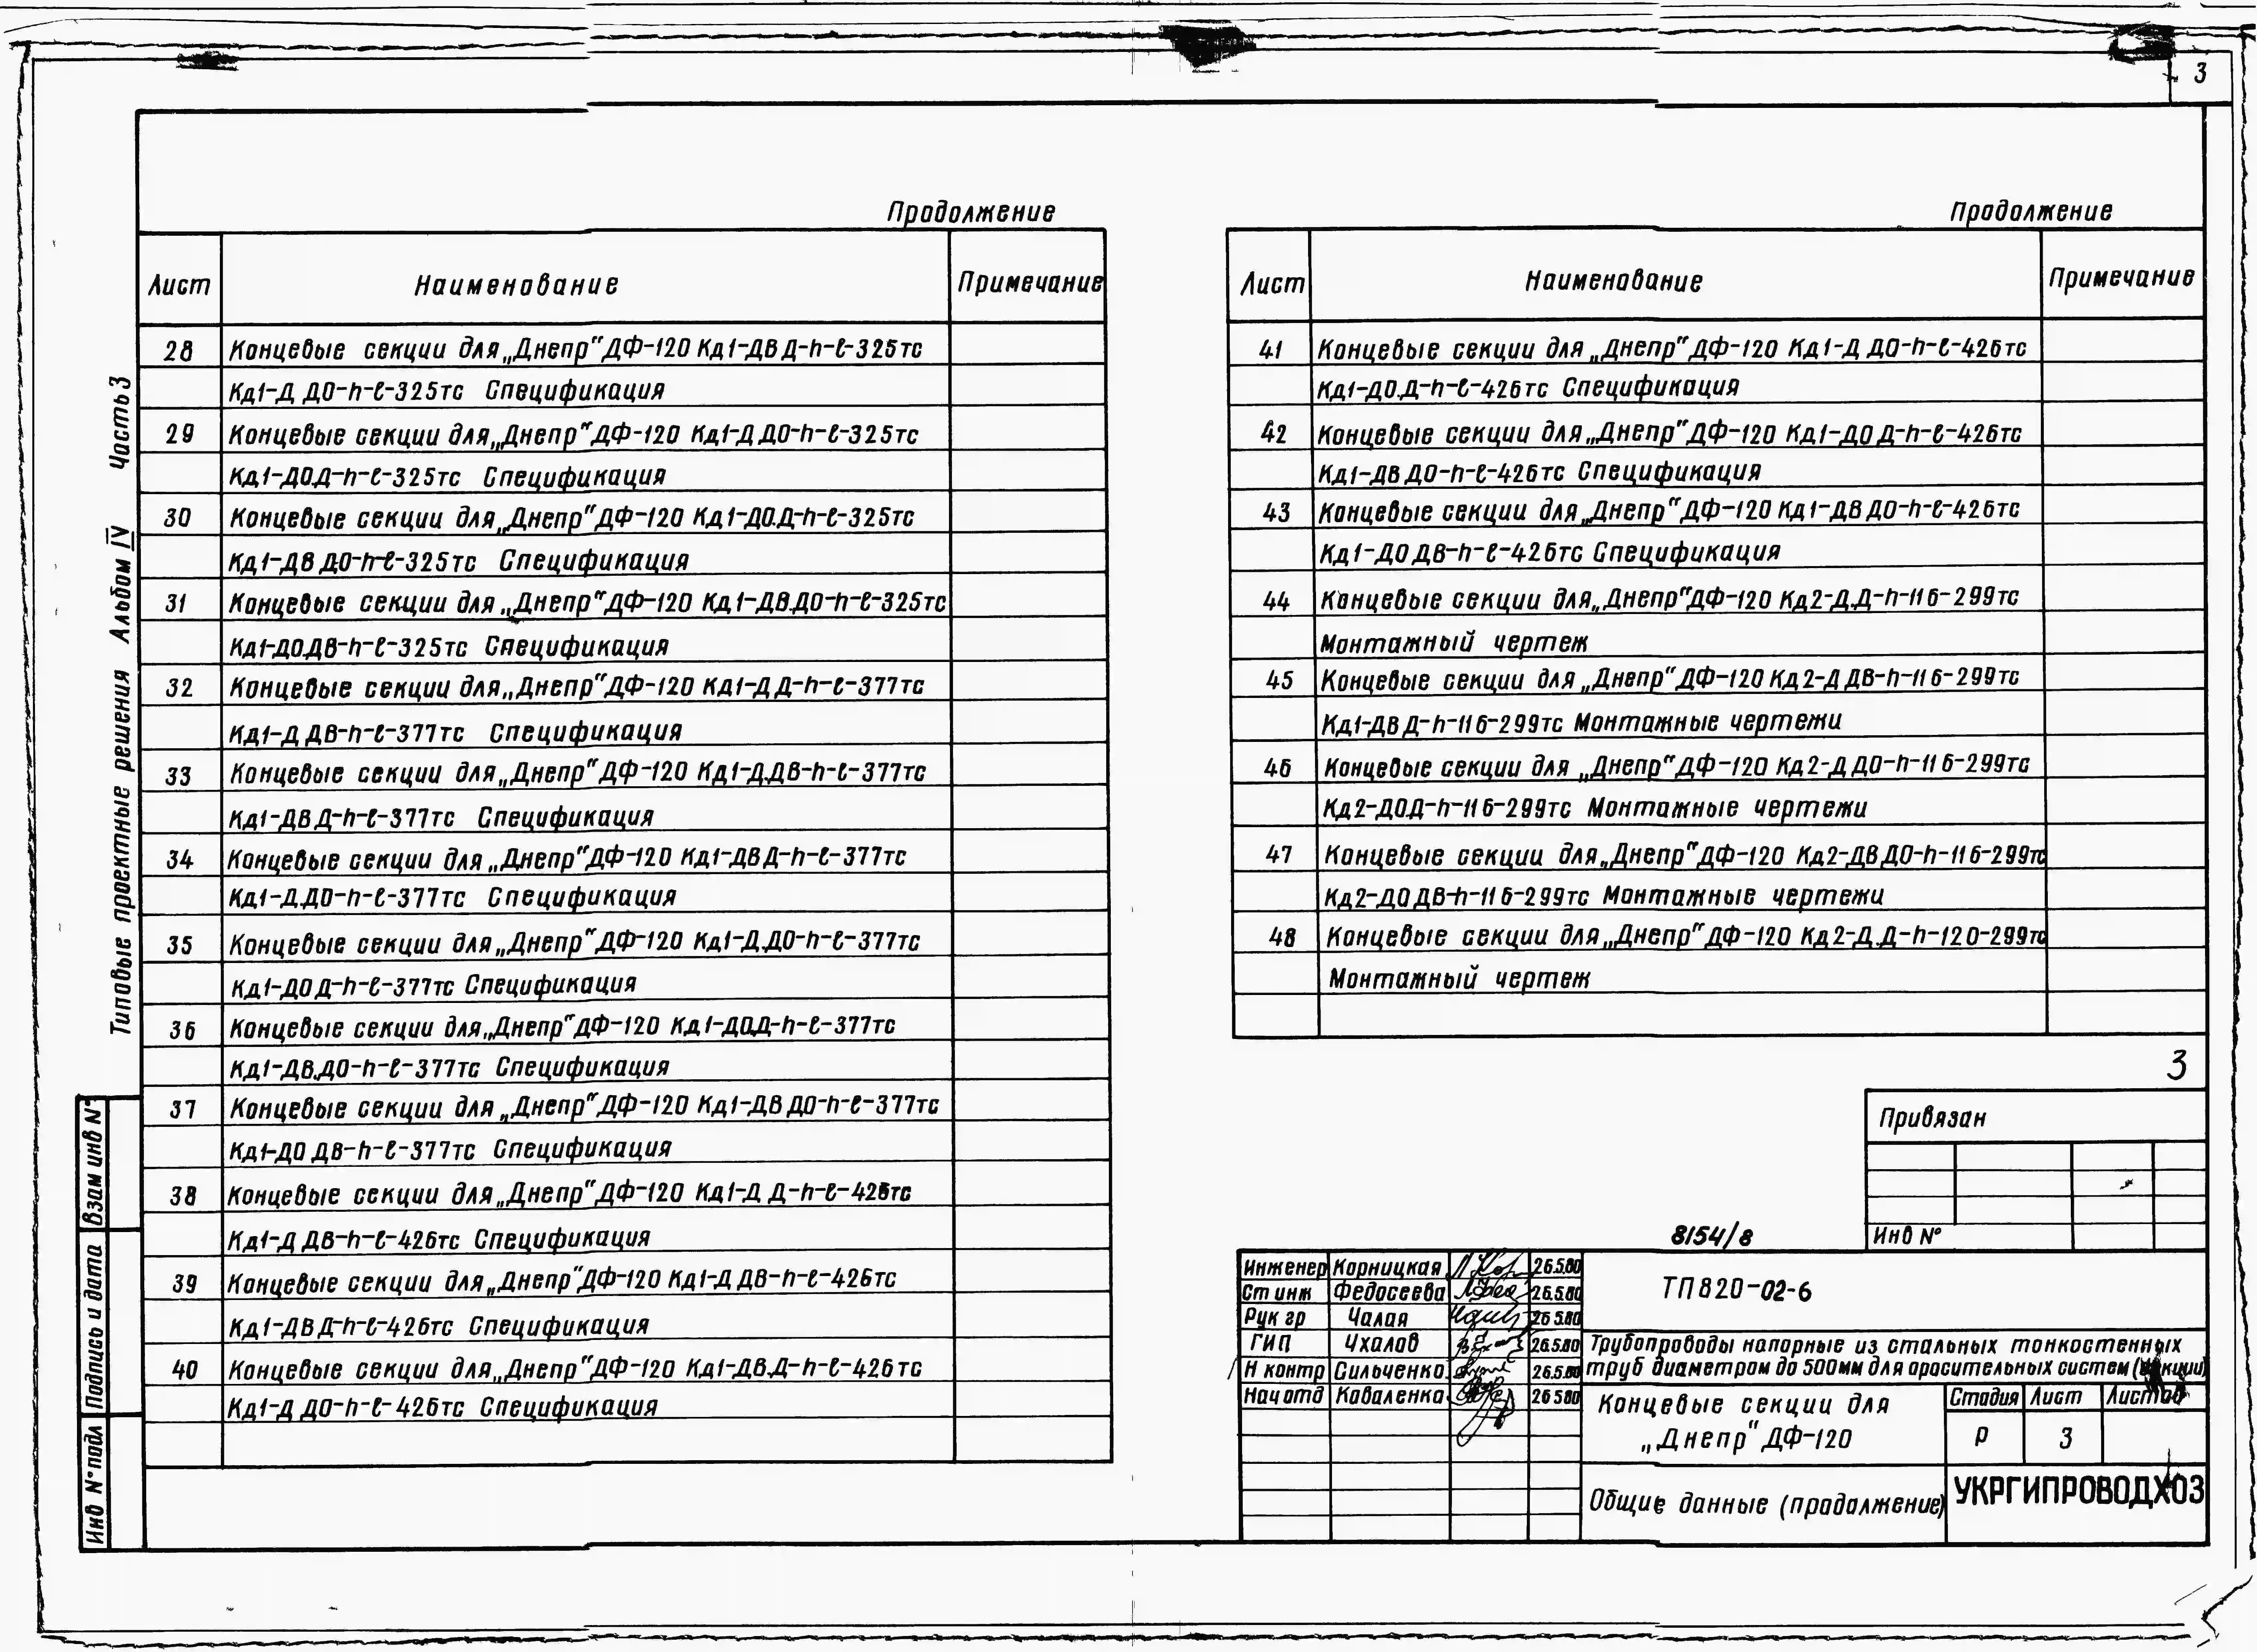 3
Продолжение
Лист Наименование Примечание
28 Концевые секции для „Днепр" ДФ-120 Кд1-ДВ.Д-h-ℓ-325тс
Кд1-Д.ДО-h-ℓ-325тс Спецификация
29 Концевые секции для „Днепр" ДФ-120 Кд1-Д.ДО-h-ℓ-325тс
Кд1-ДО.Д-h-ℓ-325тс Спецификация
30 Концевые секции для „Днепр" ДФ-120 Кд1-ДО.Д-h-ℓ-325тс
Кд1-ДВ.ДО-h-ℓ-325тс Спецификация
31 Концевые секции для „Днепр" ДФ-120 Кд1-ДВ.ДО-h-ℓ-325тс
Кд1-ДО.ДВ-h-ℓ-325тс Спецификация
32 Концевые секции для „Днепр" ДФ-120 Кд1-Д.Д-h-ℓ-377тс
Кд1-Д.ДВ-h-ℓ-377тс Спецификация
33 Концевые секции для „Днепр" ДФ-120 Кд1-Д.ДВ-h-ℓ-377тс
Кд1-ДВ.Д-h-ℓ-377тс Спецификация
34 Концевые секции для „Днепр" ДФ-120 Кд1-ДВ.Д-h-ℓ-377тс
Кд1-Д.ДО-h-ℓ-377тс Спецификация
35 Концевые секции для „Днепр" ДФ-120 Кд1-Д.ДО-h-ℓ-377тс
Кд1-ДО.Д-h-ℓ-377тс Спецификация
36 Концевые секции для „Днепр" ДФ-120 Кд1-ДО.Д-h-ℓ-377тс
Кд1-ДВ.ДО-h-ℓ-377тс Спецификация
37 Концевые секции для „Днепр" ДФ-120 Кд1-ДВ.ДО-h-ℓ-377тс
Кд1-ДО.ДВ-h-ℓ-377тс Спецификация
38 Концевые секции для „Днепр" ДФ-120 Кд1-Д.Д-h-ℓ-426тс
Кд1-Д.ДВ-h-ℓ-426тс Спецификация
39 Концевые секции для „Днепр" ДФ-120 Кд1-Д.ДВ-h-ℓ-426тс
Кд1-ДВ.Д-h-ℓ-426тс Спецификация
40 Концевые секции для „Днепр" ДФ-120 Кд1-ДВ.Д-h-ℓ-426тс
Кд1-Д.ДО-h-ℓ-426тс Спецификация
Продолжение
Лист Наименование Примечание
41 Концевые секции для „Днепр" ДФ-120 Кд1-Д.ДО-h-ℓ-426тс
Кд1-ДО.Д-h-ℓ-426тс Спецификация
42 Концевые секции для „Днепр" ДФ-120 Кд1-ДО.Д-h-ℓ-426тс
Кд1-ДВ.ДО-h-ℓ-426тс Спецификация
43 Концевые секции для „Днепр" ДФ-120 Кд1-ДВ.ДО-h-ℓ-426тс
Кд1-ДО.ДВ-h-ℓ-426тс Спецификация
44 Концевые секции для „Днепр" ДФ-120 Кд2-Д.Д-h-116-299тс
Монтажный чертеж
45 Концевые секции для „Днепр" ДФ-120 Кд2-Д.ДВ-h-116-299тс
Кд1-ДВ.Д-h-116-299тс Монтажные чертежи
46 Концевые секции для „Днепр" ДФ-120 Кд2-Д.ДО-h-116-299тс
Кд2-ДО.Д-h-116-299тс Монтажные чертежи
47 Концевые секции для „Днепр" ДФ-120 Кд2-ДВ.ДО-h-116-299тс
Кд2-ДО.ДВ-h-116-299тс Монтажные чертежи
48 Концевые секции для „Днепр" ДФ-120 Кд2-Д.Д-h-120-299тс
Монтажный чертеж
3
Типовые проектные решения Альбом IV Часть 3
Взам инв N°
Подпись и дата
Инв N° подл
Привязан
Инв N°
8154/8
Инженер Корницкая 26.5.80
Ст инж Федосеева 26.5.80
Рук гр Чалая 26.5.80
ГИП Ухалов 26.5.80
Н контр Сильченко 26.5.80
Нач отд Коваленко 26.5.80
ТП 820-02-6
Трубопроводы напорные из стальных тонкостенных
труб диаметром до 500мм для оросительных систем
Концевые секции для
„Днепр" ДФ-120
Стадия Лист Листов
Р 3
Общие данные (продолжение)
УКРГИПРОВОДХОЗ